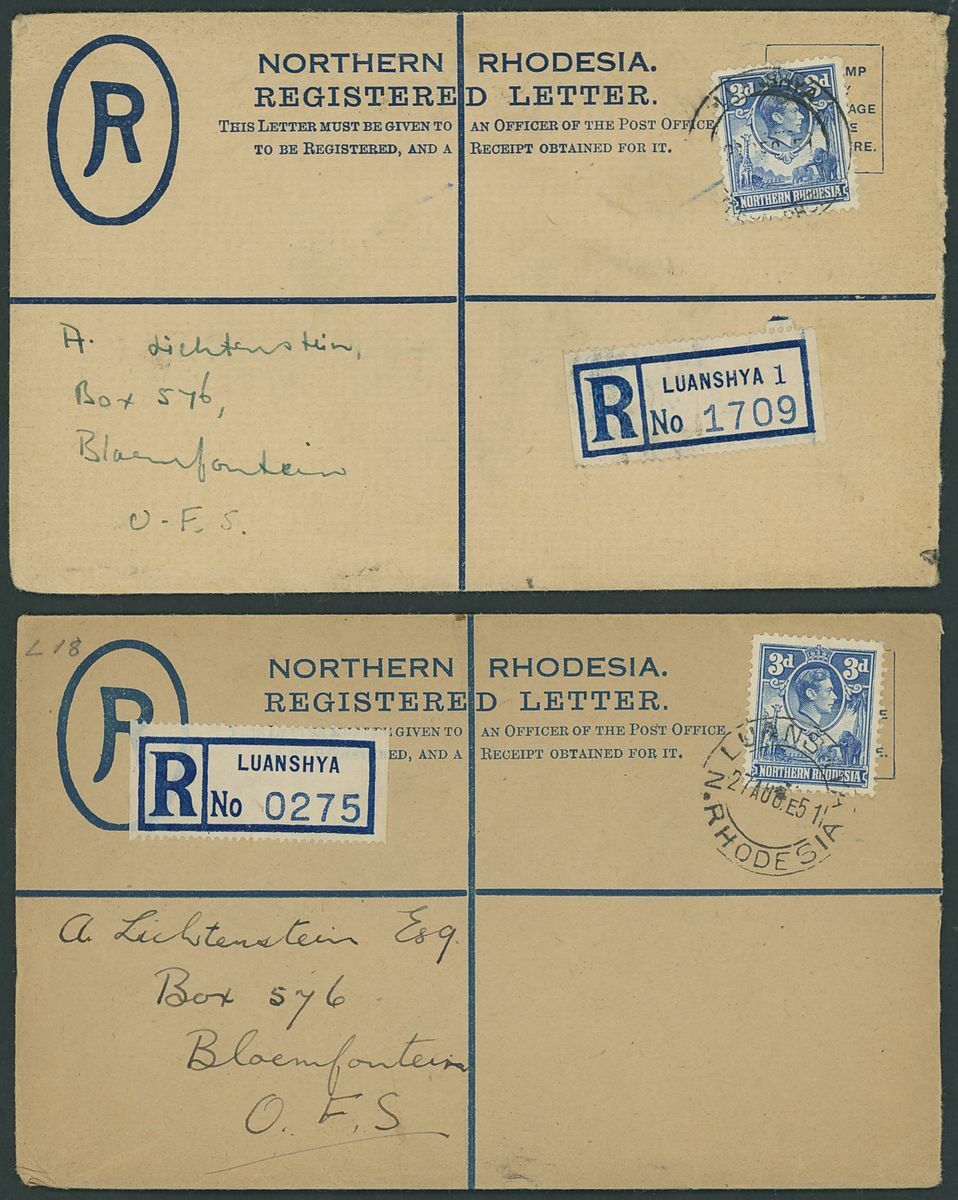 R
NORTHERN RHODESIA.
REGISTERED LETTER.
THIS LETTER MUST BE GIVEN TO AN OFFICER OF THE POST OFFICE
TO BE REGISTERED, AND A RECEIPT OBTAINED FOR IT.
3d
NORTHERN RHODESIA
RE.
A. Lichtenstein,
Box 576,
Bloemfontein
O.F.S.
R
LUANSHYA 1
No 1709
L 18
R
NORTHERN RHODESIA.
REGISTERED LETTER.
GIVEN TO AN OFFICER OF THE POST OFFICE
ED, AND A RECEIPT OBTAINED FOR IT.
3d 3d
NORTHERN RHODESIA
27 AUG. E 51
N. RHODESIA
R
LUANSHYA
No 0275
A Lichtenstein Esq.
Box 576
Bloemfontein
O.F.S